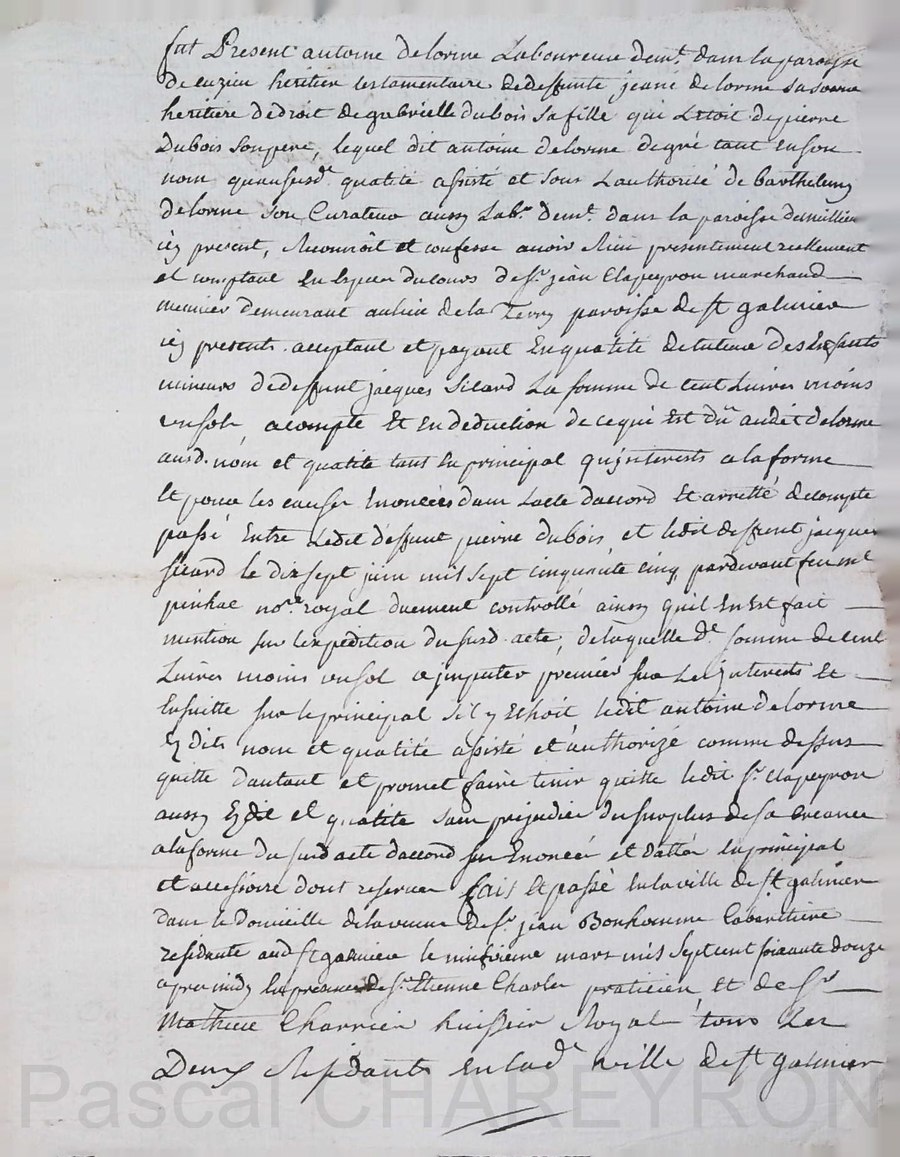 fut Present antoine delorme Laboureur demt. dans la paroisse
de cuzieu heritier testamentaire de deffunte jeane delorme sa soeur
heritiere de droit de gabrielle dubois sa fille qui Letoit de pierre
Dubois son pere, lequel dit antoine delorme de gré tant En son
nom qu'ausd. qualité assisté et sous Lauthorité de Barthelemy
delorme son Curateur aussy Labr. demt. dans la paroisse
icy present, Reconnoit et confesse avoir Reçu presentement reellement
et comptant En Especes du cours de sr. jean Clapeyron marchand
meunier demeurant au lieu de la Terry paroisse de st galmier
icy present acceptant et payant En qualité de tuteur des Enfants
mineurs de deffunt jacques Sicard La somme de cent Livres moins
un sol acompte Et En deduction de ce qui Est dû audit delorme
ausd. nom et qualité tant En principal qu'jnterests a la forme
Et pour les causes Enoncées dans Lacte daccord Et arretté de compte
passé Entre Ledit deffunt pierre dubois et ledit deffunt jacques
Sicard le dix sept juin mil sept cinquante cinq pardevant feu me
pinhac nore. royal duement controllé ainsy quil En Est fait
mention sur Lexpedition du susd. acte, de laquelle de. somme de cent
Livres moins un sol a jmputer premier sur Les jnterests Et
Ensuitte sur le principal sil y Echoit ledit antoine delorme
Ez dits nom et qualité assisté et authorizé comme dessus
quitte dautant et promet faire tenir quitte ledit sr. clapeyron
aussy Ezdit et qualité sans prejudice du surplus de sa creance
a la forme du susd acte daccord sus Enoncé et datté En principal
et accessoire dont reserver fait Et passé En la ville de st galmier
dans le domicille de la veuve de sr. jean Bonhomme Cabaretiere
residante aud st galmier le mars mil sept cent soixante douze
apres midy En presence de sr. Etienne Charles praticien et de sr
Mathieu Charrier huissier Royal tous Les
Deux Residants En lade ville de st galmier
Pascal CHAREYRON